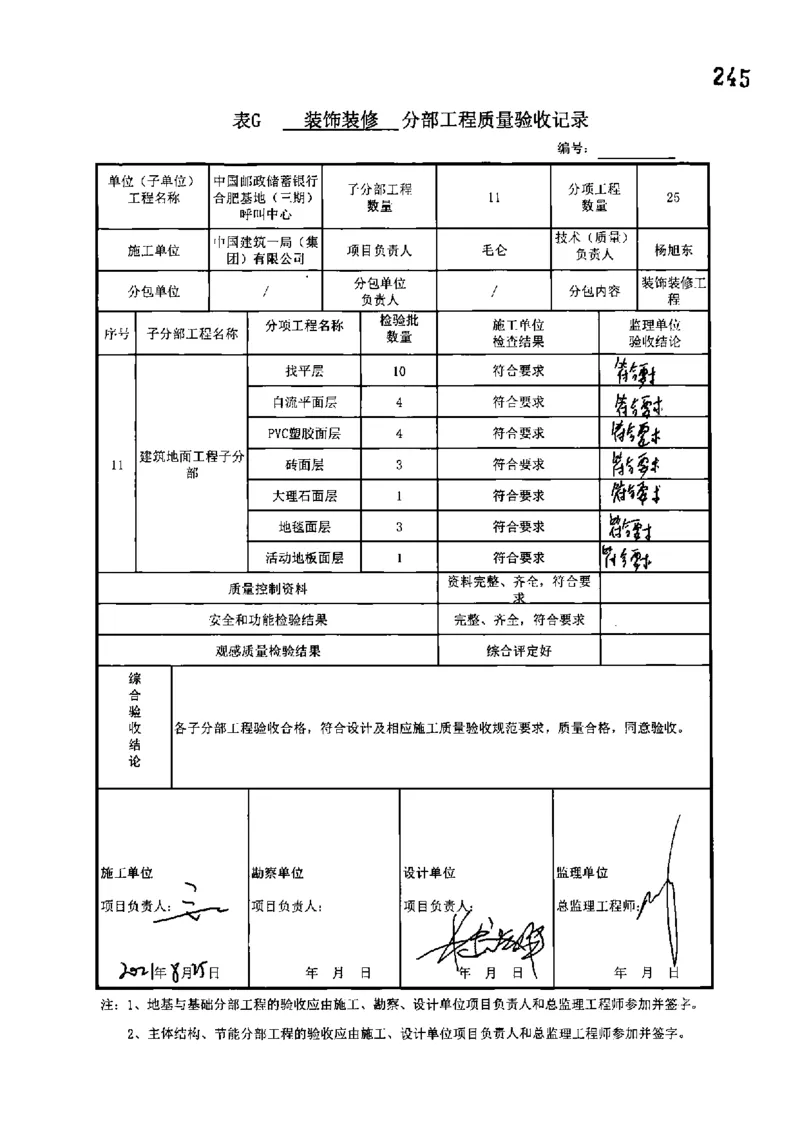 245
表G 装饰装修 分部工程质量验收记录
编号：
单位（子单位）工程名称 中国邮政储蓄银行合肥基地（三期）呼叫中心 子分部工程数量 11 分项工程数量 25
施工单位 中国建筑一局（集团）有限公司 项目负责人 毛仑 技术（质量）负责人 杨旭东
分包单位 / 分包单位负责人 / 分包内容 装饰装修工程
序号 子分部工程名称 分项工程名称 检验批数量 施工单位检查结果 监理单位验收结论
11 建筑地面工程子分部
找平层 10 符合要求 符合要求
自流平面层 4 符合要求 符合要求
PVC塑胶面层 4 符合要求 符合要求
砖面层 3 符合要求 符合要求
大理石面层 1 符合要求 符合要求
地毯面层 3 符合要求 符合要求
活动地板面层 1 符合要求 符合要求
质量控制资料 资料完整、齐全，符合要求
安全和功能检验结果 完整、齐全，符合要求
观感质量检验结果 综合评定好
综合验收结论 各子分部工程验收合格，符合设计及相应施工质量验收规范要求，质量合格，同意验收。
施工单位 勘察单位 设计单位 监理单位
项目负责人： 项目负责人： 项目负责人： 总监理工程师：
2021年8月25日 年 月 日 年 月 日 年 月 日
注：1、地基与基础分部工程的验收应由施工、勘察、设计单位项目负责人和总监理工程师参加并签字。
2、主体结构、节能分部工程的验收应由施工、设计单位项目负责人和总监理工程师参加并签字。